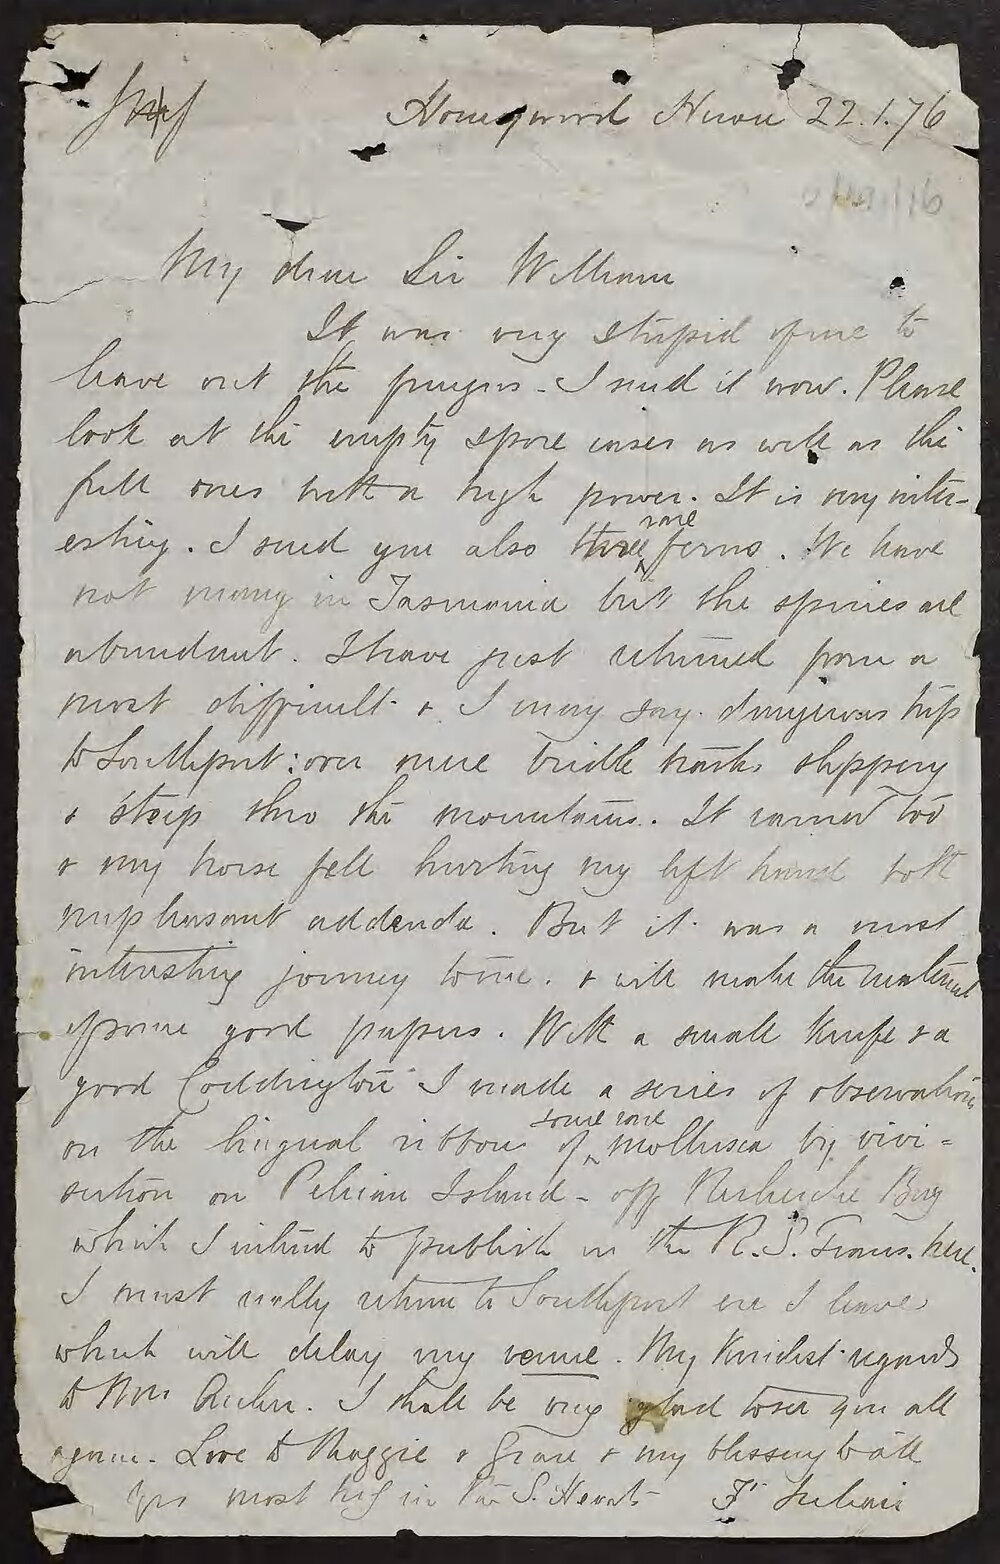 Honeywood Huon 22.1.76
My dear Sir William
It was very stupid of me to
leave out the fungus. I send it now. Please
look at the empty spore cases as well as the
full ones with a high power. It is very inter-
esting. I send you also three rare ferns. We have
not many in Tasmania but the species are
abundant. I have just returned from a
most difficult & I may say dangerous trip
to Southport: over mere bridle tracks slippery
& steep thro the mountains. It rained too
& my horse fell hurting my left hand both
unpleasant addenda. But it was a most
interesting journey to me. & will make the material
of some good papers. With a small knife & a
good Coddington I made a series of observations
on the lingual ribbon of some rare mollusca by vivi=
section on Pelican Island - off Recherche Bay
which I intend to publish in the R. S. Trans. here.
I must really return to Southport ere I leave
which will delay my venue. My kindest regards
to Mrs I shall be very glad to see you all
again. Love to Maggie & Grace & my blessing to all
Yrs most in the S. Hearts F. Julian